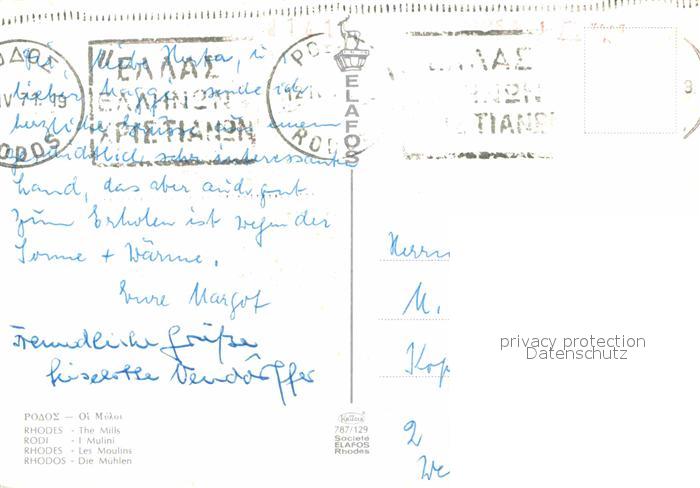 lieber Maggi, sende ich
herzliche Grüsse aus einem
sehr interessanten
Land, das aber auch gut
zum Erholen ist wegen der
Sonne + Wärme.
Eure Margot
Freundliche Grüße
Liselotte
ΡΟΔΟΣ — Οἱ Μύλοι
RHODES - The Mills
RODI - I Mulini
RHODES - Les Moulins
RHODOS - Die Mühlen
ΕΛΛΑΣ
ΕΛΛΗΝΩΝ
ΧΡΙΣΤΙΑΝΩΝ
ΡΟΔΟΣ
RODOS
ELAFOS
787/129
Société
ELAFOS
Rhodes
Herrn
M.
Kop
2
We
privacy protection
Datenschutz